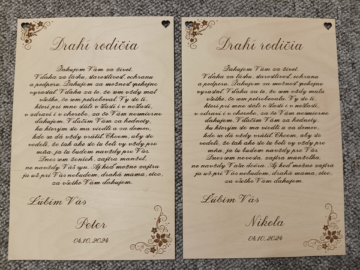 Drahí rodičia
Ďakujem Vám za život.
Vďaka za lásku, starostlivosť, ochranu
a podporu. Ďakujem za možnosť pokojne
vyrastať. Vďaka za to, že som vždy mal
všetko, čo som potreboval. Vy do ti,
ktorí pri mne stáli v šťastí i v neštastí,
v zdraví i v chorobe, za to Vám nesmierne
ďakujem. Vďačím Vám za hodnoty,
ku ktorým ste ma viedli a za domov,
kde sa dá vždy vrátiť. Chcem, aby ste
vedeli, že tak ako ste tu boli vy vždy pre
mňa, ja tu budem navždy pre Vás.
Dnes som ženích, zajtra manžel,
no navždy Váš syn. Aj keď možno zajtra
je už pri Vás nebudem, drahá mama, otec,
za všetko Vám ďakujem.
Ľúbim Vás
Peter
04.10.2024
Drahí rodičia
Ďakujem Vám za život.
Vďaka za lásku, starostlivosť, ochranu
a podporu. Ďakujem za možnosť pokojne
vyrastať. Vďaka za to, že som vždy mala
všetko, čo som potrebovala. Vy ste ti,
ktorí pri mne stáli v šťastí i v neštastí,
v zdraví i v chorobe, za to Vám nesmierne
ďakujem. Vďačím Vám za hodnoty,
ku ktorým ste ma viedli a za domov,
kde sa dá vždy vrátiť. Chcem, aby ste
vedeli, že tak ako ste tu boli vy vždy pre
mňa, ja tu budem navždy pre Vás.
Dnes som nevesta, zajtra manželka,
no navždy Vaša dcéra. Aj keď možno zajtra
je už pri Vás nebudem, drahá mama, otec,
za všetko Vám ďakujem.
Ľúbim Vás
Nikola
04.10.2024